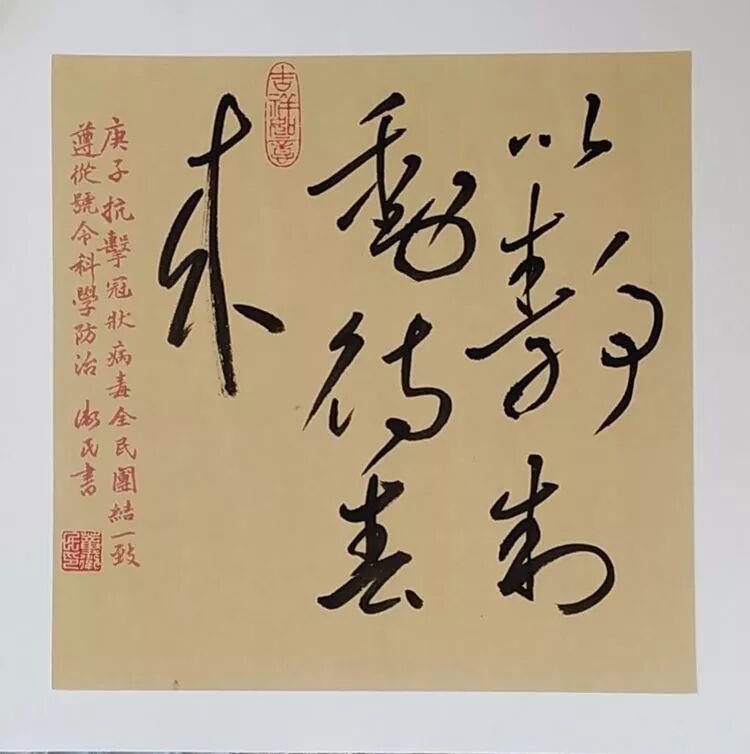 以靜制
動待春
來
吉祥如意
庚子抗擊冠狀病毒全民團結一致
遵從號令科學防治 民書